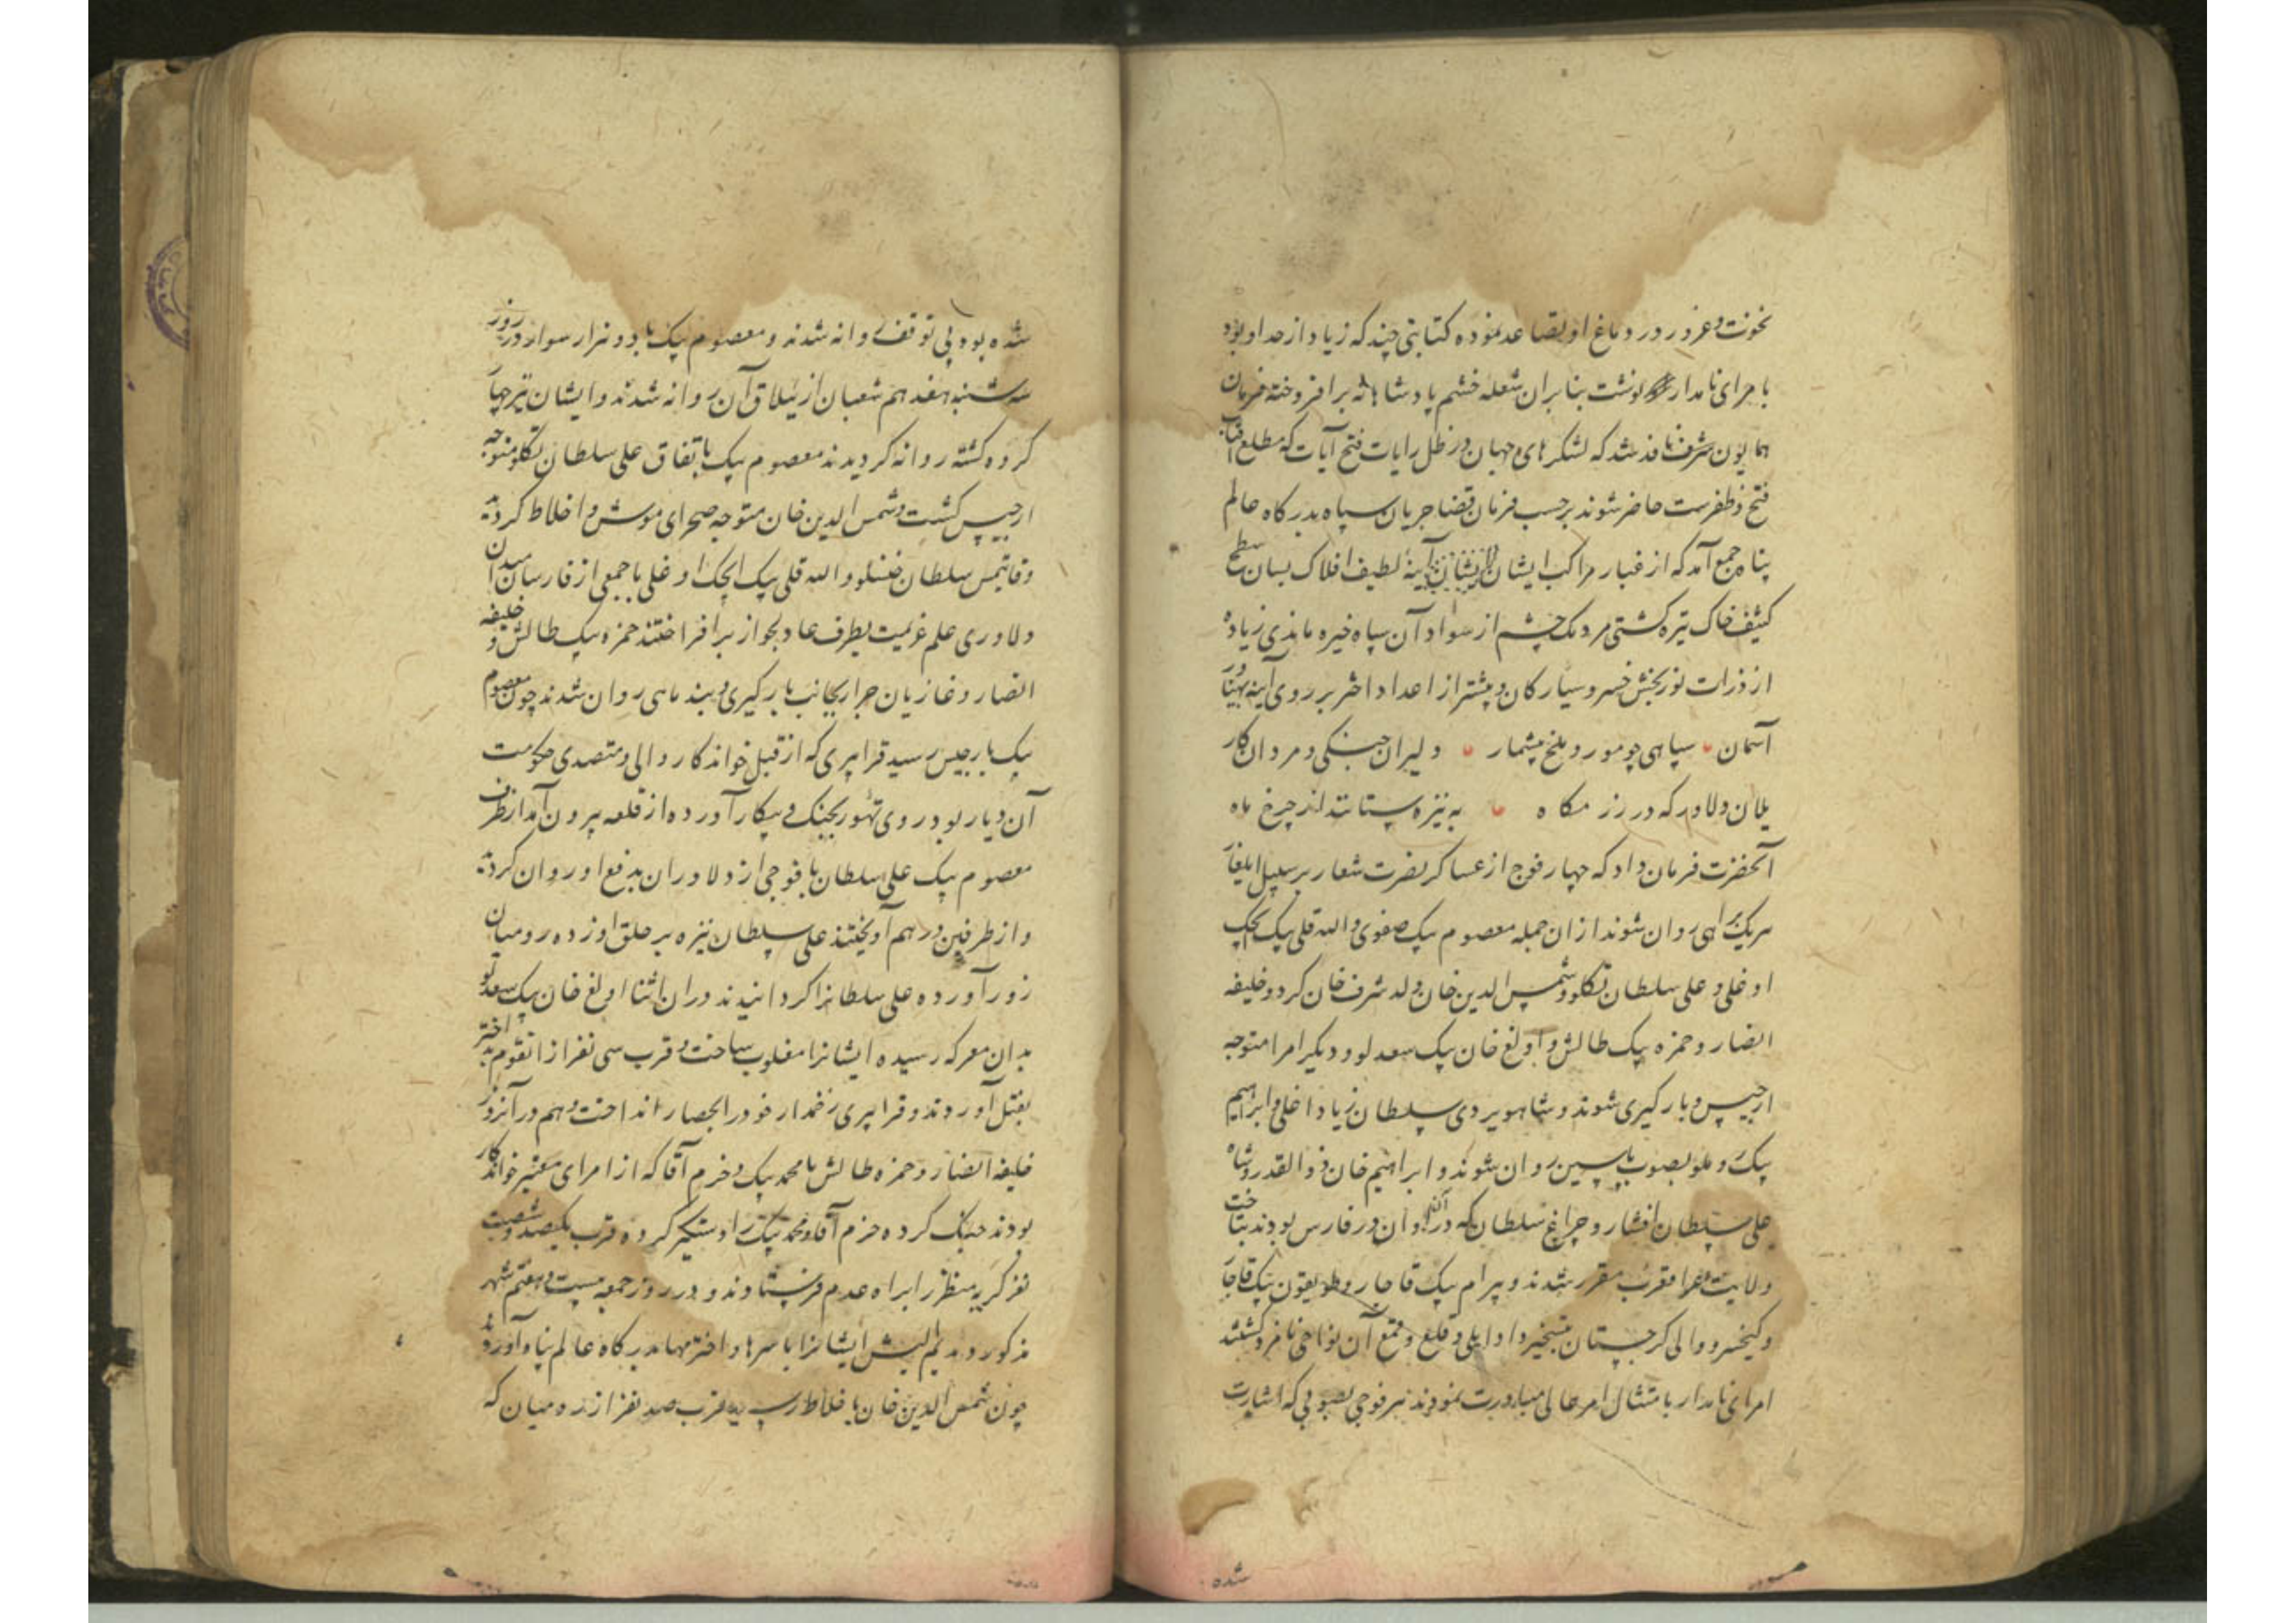 نخوت و غرور در دماغ او تصاعد نموده کتابتی چند که زیاد از حد او بود
با مرای نامدار نوشت بنابران شعله خشم پادشاهانه برافروخته فرمان
همایون شرف نفاذ شد که لشکرهای جهان در ظل رایات فتح آیات که مطلع آفتاب
فتح و ظفرست حاضر شوند برحسب فرمان قضا جریان سپاه بدرکاه عالم
پناه جمع آمد که از غبار مراکب ایشان آینهٔ لطیف افلاک بسان سطح
کثیف خاک تیره کشتی مردمک چشم از سواد آن سپاه خیره ماندی زیاده
از ذرات نوربخش خسرو سیارکان و بیشتر از اعداد اختر بر روی آینه پهناور
آسمان سپاهی چو مور و ملخ بیشمار دلیران جنکی و مردان کار
یلان دلاور که در رزمکاه به نیزه ستانند از چرخ ماه
آنحضرت فرمان داد که چهار فوج از عساکر نصرت شعار بر سبیل ایلغار
هریک براهی روان شوند ازان جمله معصوم بیک صفوی و الله قلی بیک ایجک
اوغلی و علی سلطان تکلو و شمس الدین خان ولد شرف خان کرد و خلیفه
انصار و حمزه بیک طالش و اولغ خان بیک سعدلو و دیکر امرا متوجه
ارجیس و بارکیری شوند و شاهویردی سلطان زیاد اغلی و ابراهیم
بیک روملو بصوب پاسین روان شوند و ابراهیم خان ذوالقدر و شاه
علی سلطان افشار و چراغ سلطان که در آن اوان در فارس بودند بتاخت
ولایت مقرر شدند و بیرام بیک قاجار و طویقون بیک قاجار
و کیخسرو والی کرجستان بتسخیر داوایلی و قلع و قمع آن نواحی نامزد کشتند
امرای نامدار بامتثال امر عالی مبادرت نمودند هر فوجی بصوبی که اشارت
شده
شده بود بی توقف روانه شدند و معصوم بیک با دو هزار سوار در روز
سه شنبه هفدهم شعبان از ییلاق آن روانه شدند و ایشان نیز چهار
کروه کشته روانه کردیدند معصوم بیک باتفاق علی سلطان تکلو متوجه
ارجیس کشت و شمس الدین خان متوجه صحرای موش و اخلاط کردید
و قایتمس سلطان و الله قلی بیک ایجک اوغلی با جمعی از فارسان میدان
دلاوری علم عزیمت بطرف عادلجواز برافراختند حمزه بیک طالش و خلیفه
انصار و غازیان جرار بجانب بارکیری و بندماهی روان شدند چون معصوم
بیک بارجیس رسید قرا پری که از قبل خواندکار والی و متصدی حکومت
آن دیار بود روی تهور بجنک و پیکار آورده از قلعه بیرون آمد ازطرف
معصوم بیک علی سلطان با فوجی از دلاوران بدفع او روان کردید
و از طرفین درهم آویختند علی سلطان نیزه بر حلق او زده رومیان
زور آورده علی سلطانرا کردانیدند دران اثنا اولغ خان بیک سعدلو
بدان معرکه رسیده ایشانرا مغلوب ساخت و قرب سی نفر از انقوم بد اختر
بقتل آوردند و قرا پری زخمدار خود را بحصار انداخت و هم در آنروز
خلیفه انصار و حمزه طالش با محمد بیک و خرم آقا که از امرای معتبر خواندکار
بودند جنک کرده خرم آقا و محمد بیک را دستکیر کرده قرب یکصد و شصت
نفر کریه منظر را براه عدم فرستادند و در روز جمعه بیست و هفتم شهر
مذکور ایشانرا با سرها و اخترمها بدرکاه عالم پناه آوردند
چون شمس الدین خان با خلاط رسید قرب صد نفر از ده میان که